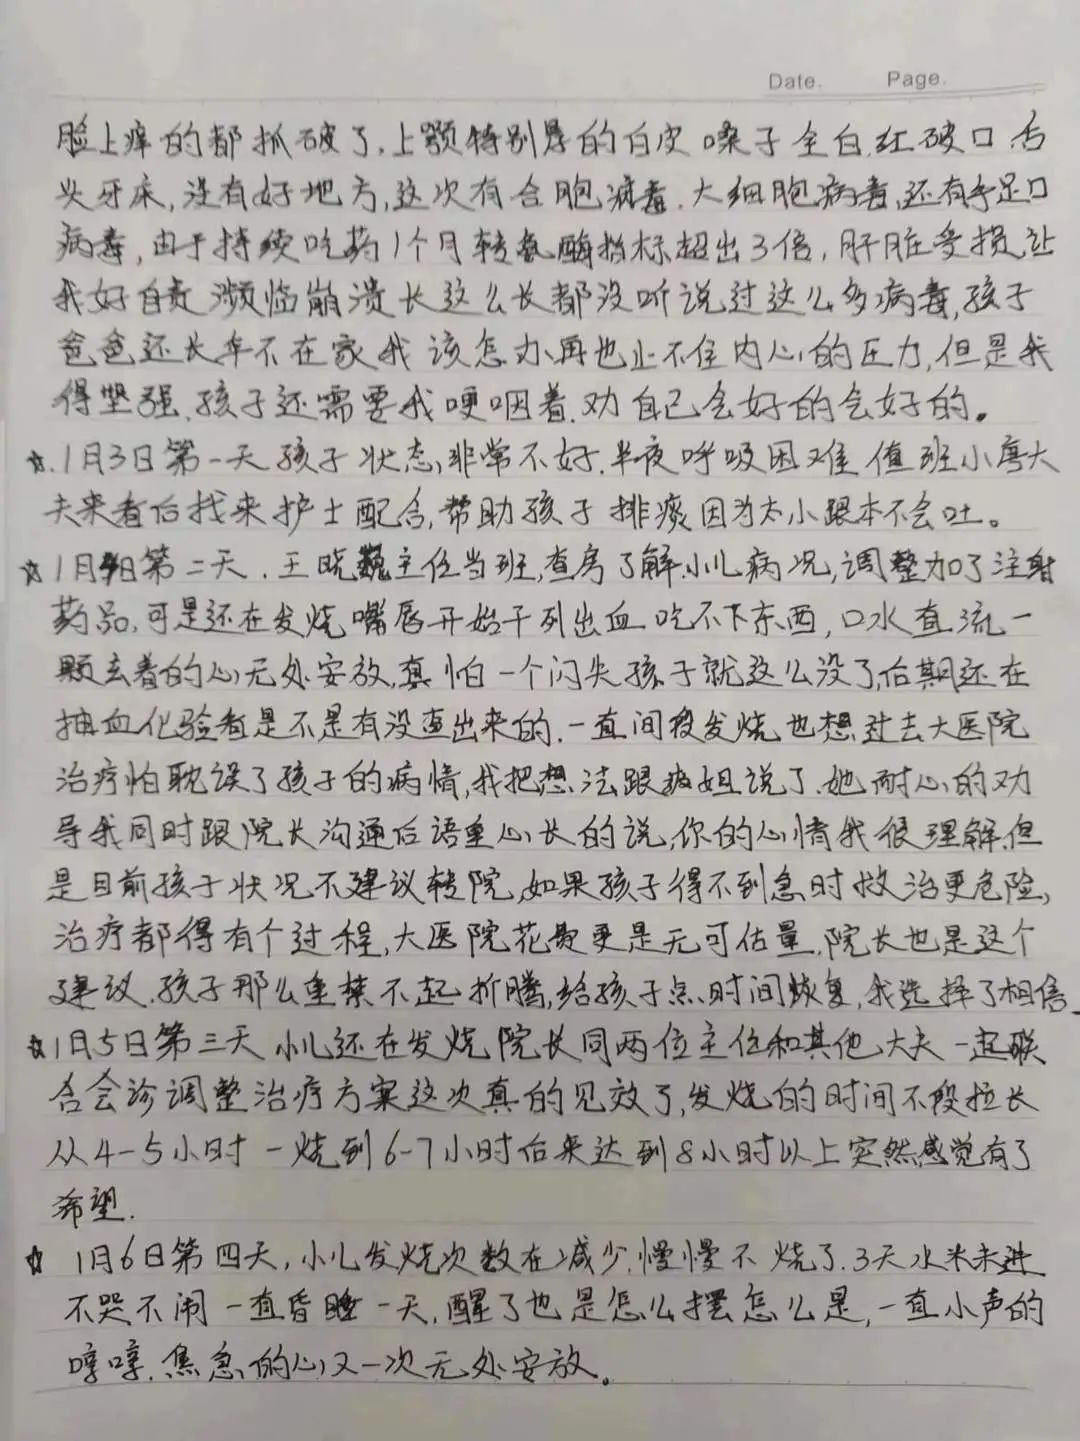 Date. Page.
脸上痒的都抓破了,上颚特别厚的白皮 嗓子全白.红破口 舌
头牙床,没有好地方,这次有合胞病毒.大细胞病毒,还有手足口
病毒,由于持续吃药1个月转氨酶指标超出3倍,肝脏受损让
我好自责 濒临崩溃长这么长都没听说过这么多病毒,孩子
爸爸还长年不在家我该怎办再也止不住内心的压力,但是我
得坚强.孩子还需要我哽咽着.劝自己会好的会好的。
☆.1月3日第一天孩子状态,非常不好.半夜呼吸困难 值班小唐大
夫来看后找来护士配合,帮助孩子排痰因为太小跟本不会吐。
☆1月4日第二天.王晓巍主任当班,查房了解小儿病况,调整加了注射
药品,可是还在发烧嘴唇开始干列出血吃不下东西,口水直流一
颗玄着的心无处安放,真怕一个闪失孩子就这么没了,后期还在
抽血化验看是不是有没查出来的.一直间段发烧也想过去大医院
治疗怕耽误了孩子的病情,我把想法跟姐说了.她耐心的劝
导我同时跟院长沟通后语重心长的说,你的心情我很理解.但
是目前孩子状况不建议转院,如果孩子得不到急时救治更危险,
治疗都得有个过程,大医院花费更是无可估量.院长也是这个
建议.孩子那么重禁不起折腾,给孩子点时间恢复,我选择了相信
☆1月5日第三天 小儿还在发烧院长同两位主任和其他大夫一起联
合会诊调整治疗方案这次真的见效了,发烧的时间不段拉长
从4-5小时一烧到6-7小时后来达到8小时以上突然感觉有了
希望.
☆ 1月6日第四天,小儿发烧次数在减少.慢慢不烧了.3天水米未进
不哭不闹一直昏睡一天,醒了也是怎么摆怎么是,一直小声的
哼哼.焦急的心又一次无处安放。